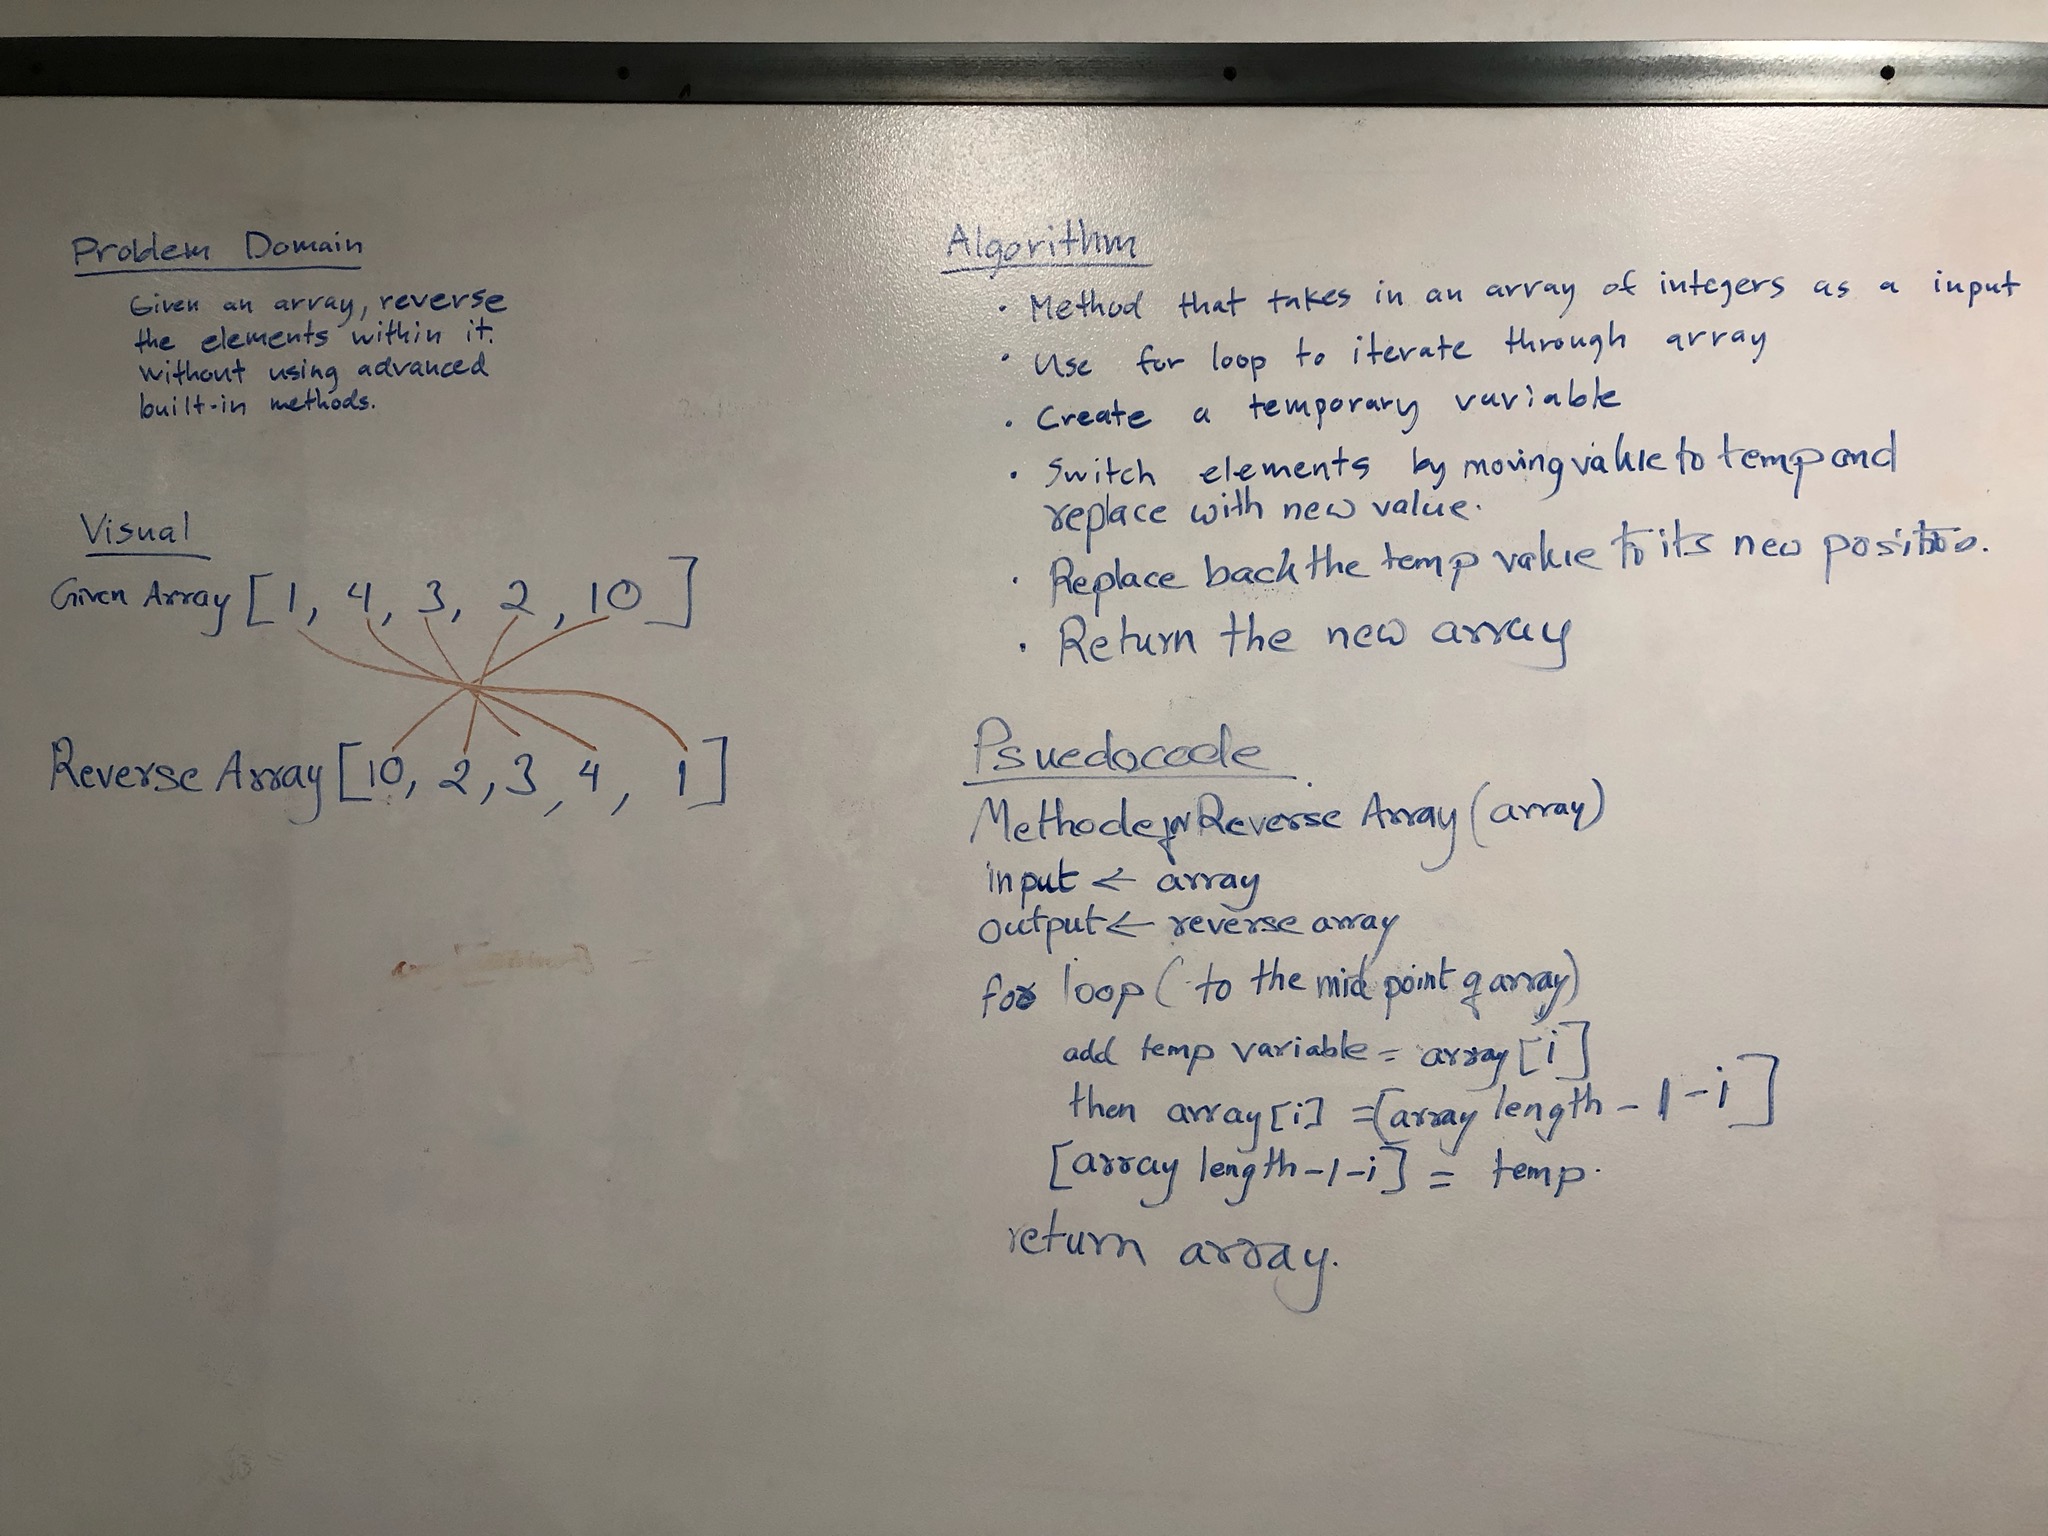 Problem Domain
Given an array, reverse
the elements within it.
without using advanced
built-in methods.
Visual
Given Array [1, 4, 3, 2, 10]
Reverse Array [10, 2, 3, 4, 1]
Algorithm
· Method that takes in an array of integers as a input
· Use for loop to iterate through array
· Create a temporary variable
· Switch elements by moving value to temp and
replace with new value.
· Replace back the temp value to its new position.
· Return the new array
Psuedocode
Reverse Array (array)
input ← array
output ← reverse array
for loop (to the mid point of array)
add temp variable = array[i]
then array[i] = [array length - 1 - i]
[array length - 1 - i] = temp.
return array.